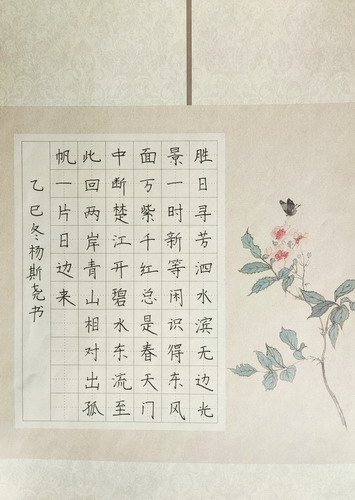 胜日寻芳泗水滨无边光
景一时新等闲识得东风
面万紫千红总是春天门
中断楚江开碧水东流至
此回两岸青山相对出孤
帆一片日边来
乙巳冬杨斯尧书